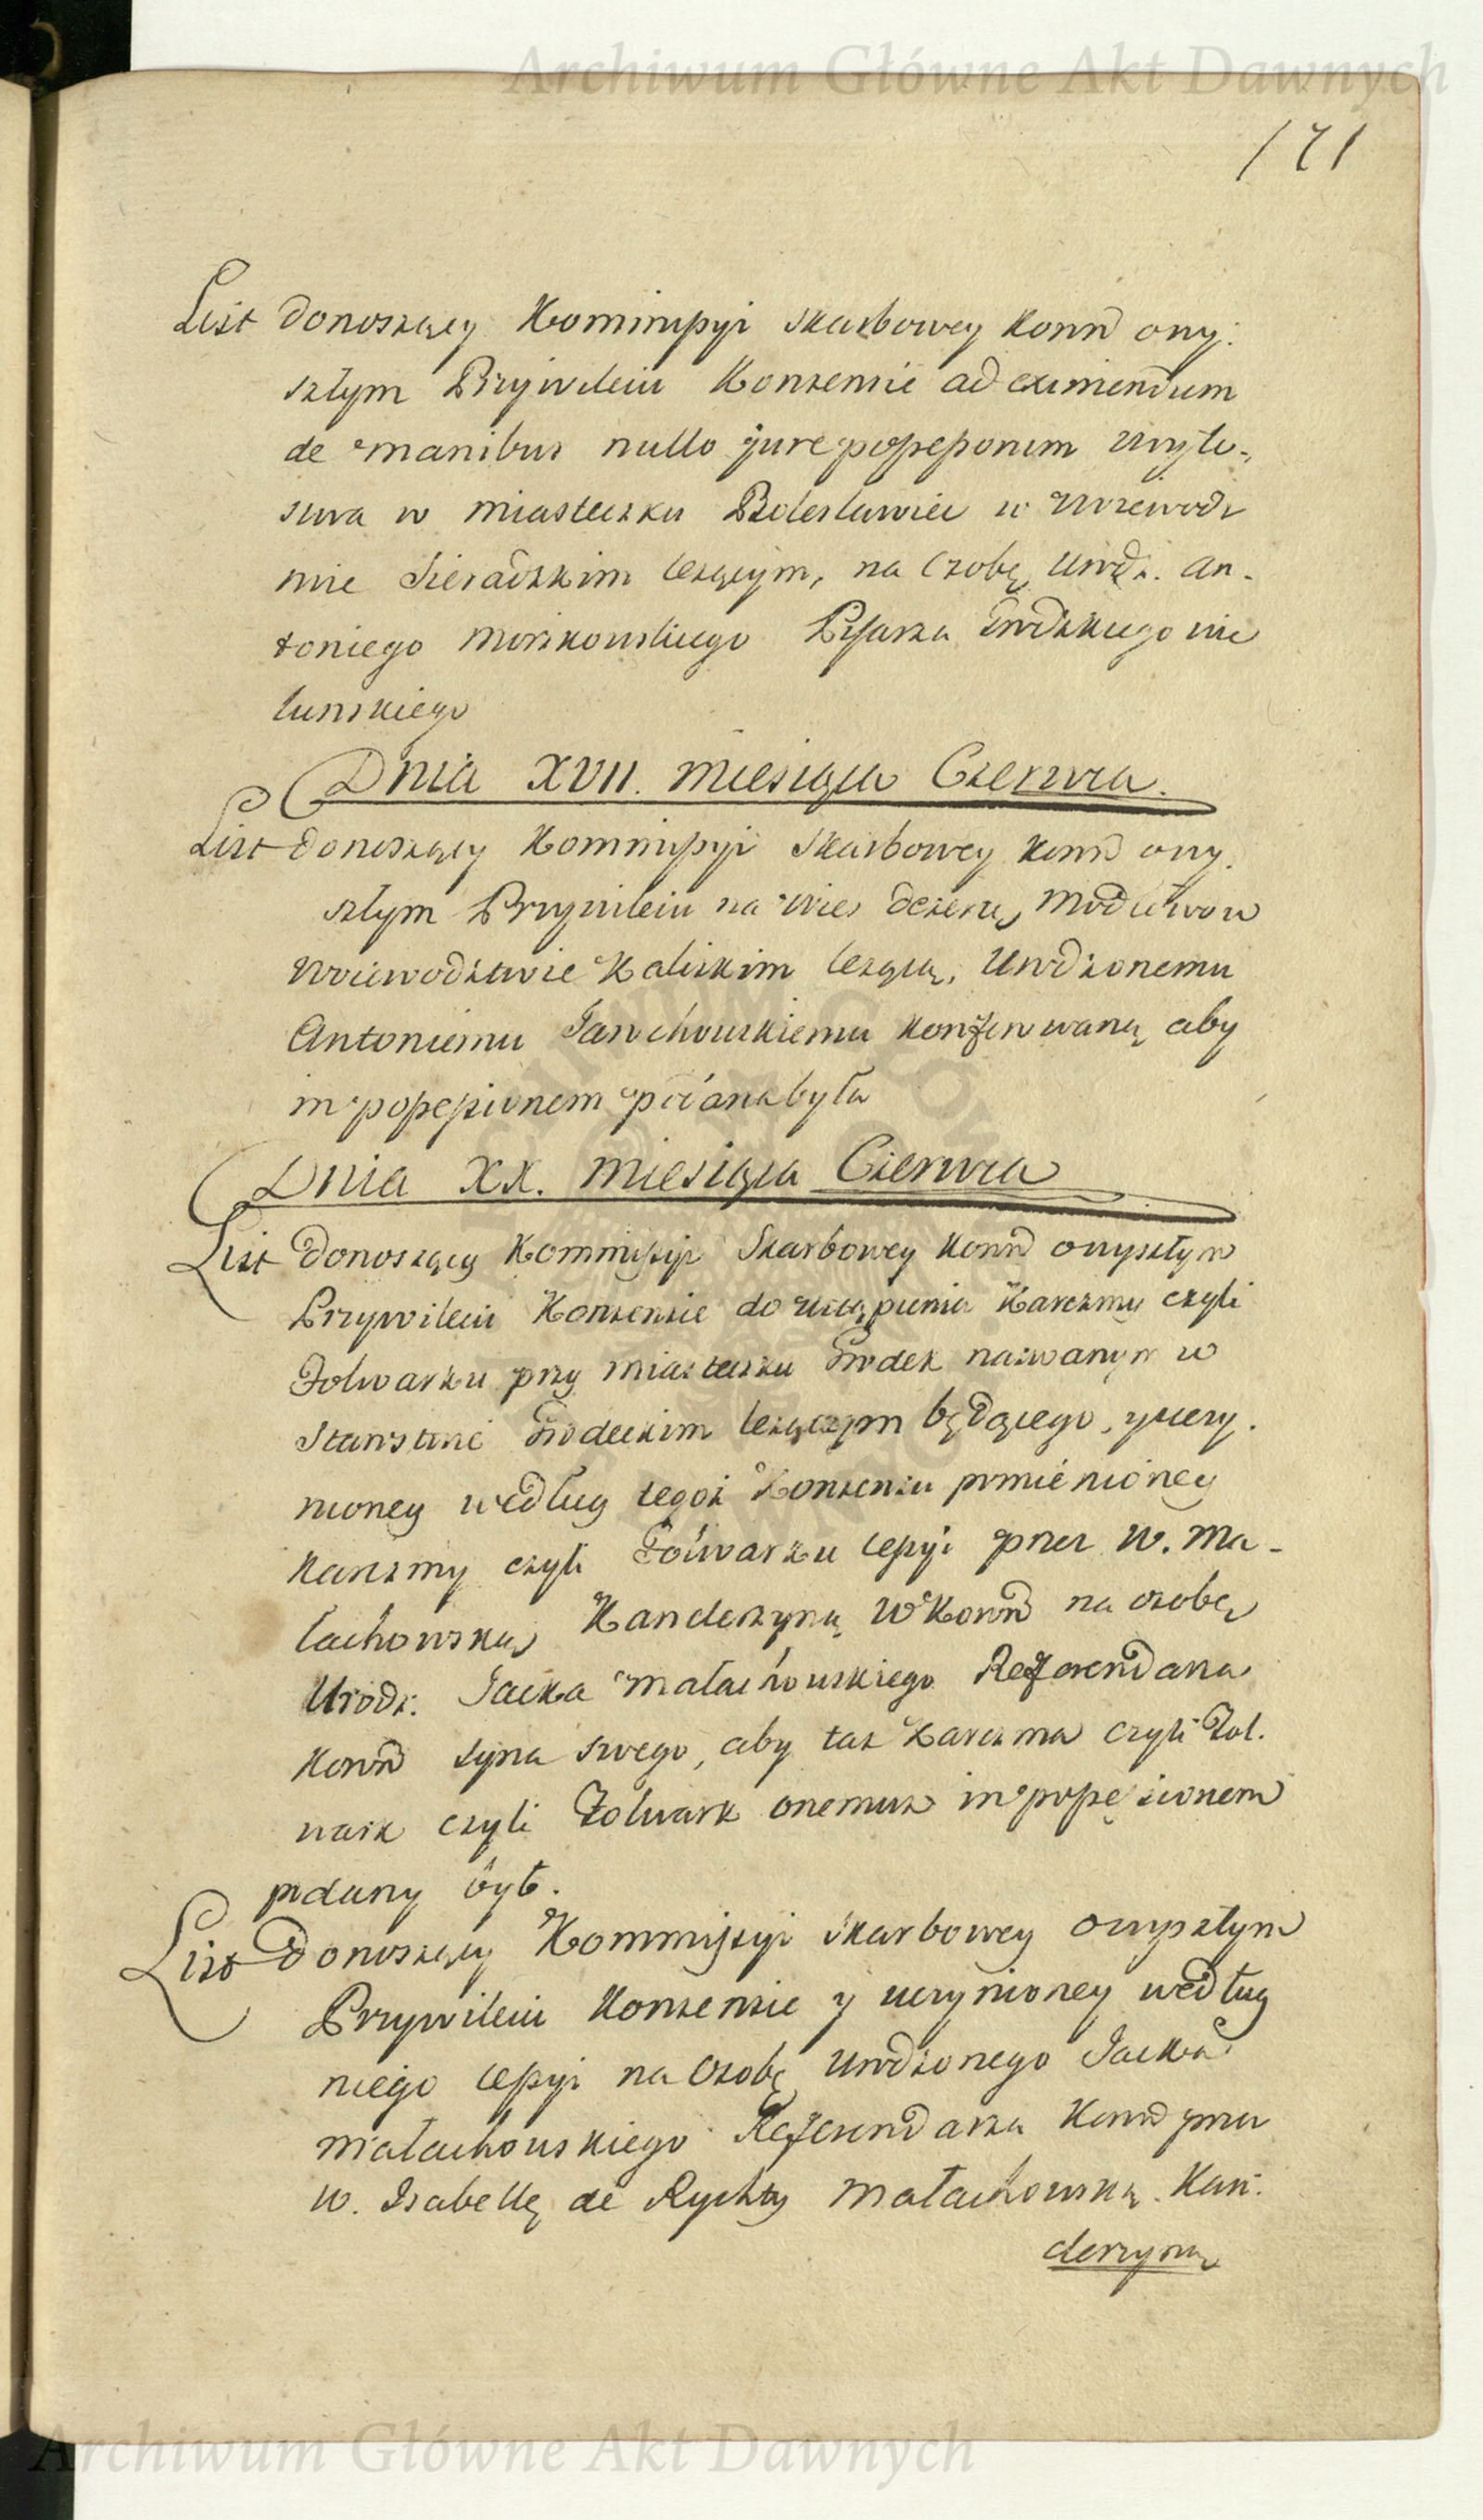 Archiwum Główne Akt Dawnych
171
List donoszący Kommissyi Skarbowey Konn o wy:
szłym Przywileiu Konsensie ad eximendum
de manibus nullo jure possessorum Wóyto-
stwa w miasteczku Bolesławiec w Woiewodz
twie Sieradzkim leżącym, na Osobę Urodz. An-
toniego Morzkowskiego Pisarza Grodzkiego Wie
lunskiego
Dnia XVII. Miesiąca Czerwca.
List donoszący Kommissyi Skarbowey Konn o wy:
szłym Przywileiu na Wies
Woiewodztwie Kaliskim leżącą, Urodzonemu
Antoniemu konferowaną aby
in possessionem podana była
Dnia XX. Miesiąca Czerwca
List donoszący Kommissyi Skarbowey Konn o wyszłym
Przywileiu Konsensie do ustąpienia Karczmy czyli
Folwarku przy miasteczku Grodek nazwanym w
Starostwie Grodeckim leżącym będącego, y uczy:
nioney według tegoż Konsensu pomienioney
Karczmy czyli Folwarku cessyi przez W. Ma-
łachowską Kanclerzynę W Konn na osobę
Urodz. Jacka Małachowskiego Referendarza
Konn syna swego, aby taż Karczma czyli Fol.
wark czyli Folwark onemuż in possessionem
podany był.
List Donoszący Kommissyi Skarbowey o wyszłym
Przywileiu Konsensie y uczynioney według
niego cessyi na Osobę Urodzonego Jacka
Małachowskiego Referendarza Konn przez
W. Isabellę de Rychty Małachowską Kan:
clerzynę
Archiwum Główne Akt Dawnych